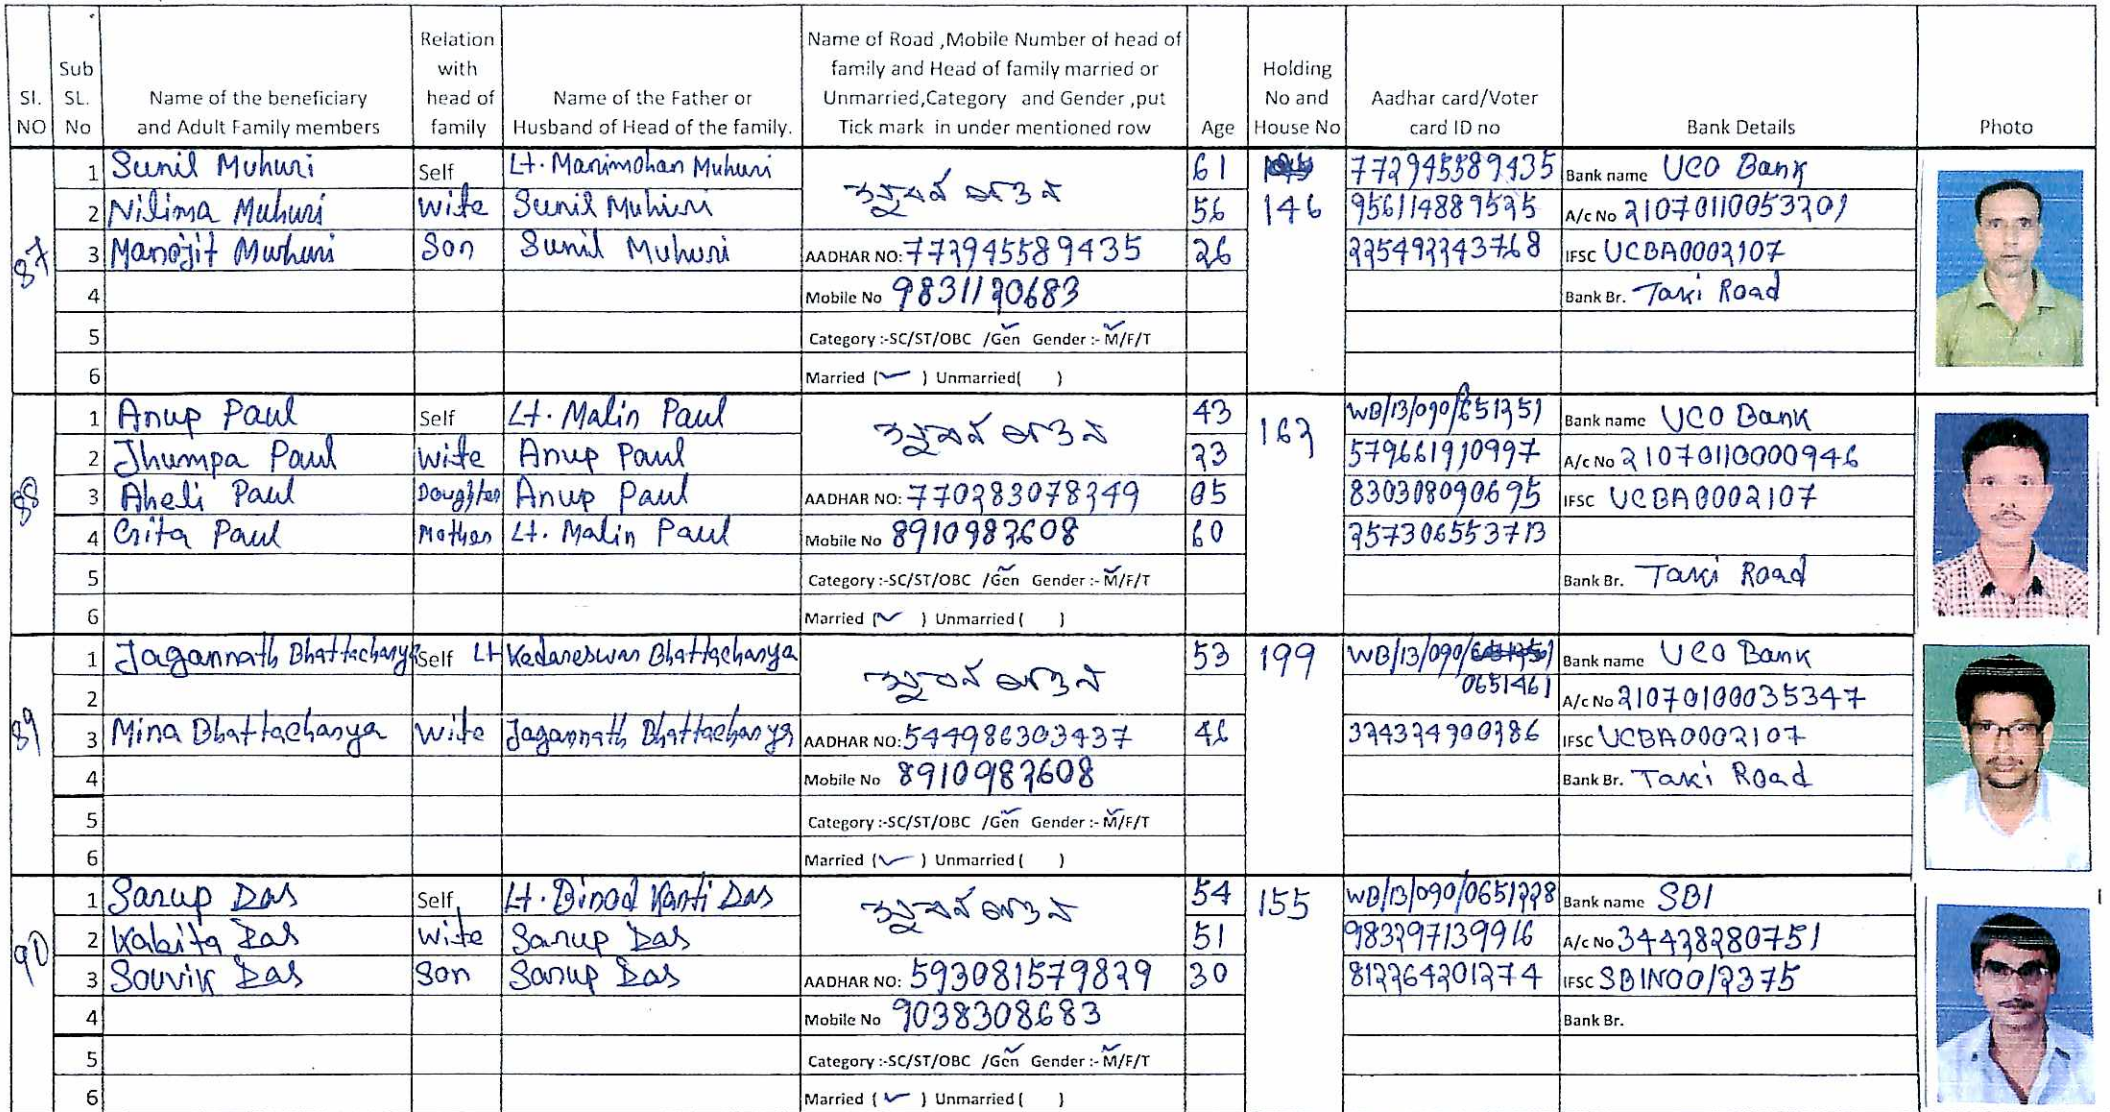 Sl. NO
Sub SL. No
Name of the beneficiary and Adult Family members
Relation with head of family
Name of the Father or Husband of Head of the family.
Name of Road ,Mobile Number of head of family and Head of family married or Unmarried,Category and Gender ,put Tick mark in under mentioned row
Age
Holding No and House No
Aadhar card/Voter card ID no
Bank Details
Photo
87
1 Sunil Muhuri Self Lt. Manimohan Muhuri 61 772945589435 Bank name UCO Bank
2 Nilima Muhuri Wife Sunil Muhuri 56 146 A/c No 21070110053201
3 Manojit Muhuri Son Sunil Muhuri AADHAR NO: 772945589435 26 225492243768 IFSC UCBA0002107
4 Mobile No 9831120683 Bank Br. Taki Road
5 Category :-SC/ST/OBC /Gen Gender :- M/F/T
6 Married (✓) Unmarried( )
88
1 Anup Paul Self Lt. Malin Paul 43 Bank name UCO Bank
2 Jhumpa Paul Wife Anup Paul A/c No 21070110000946
3 Aheli Paul Doughter Anup Paul AADHAR NO: 05 830308090695 IFSC UCBA0002107
4 Gita Paul Mother Lt. Malin Paul Mobile No 8910982608 60 257306553713
5 Category :-SC/ST/OBC /Gen Gender :- M/F/T Bank Br. Taki Road
6 Married (✓) Unmarried ( )
89
1 Jagannath Bhattacharya Self Lt Kedareswar Bhattacharya 53 199 WB/13/090/ Bank name UCO Bank
2 0651461 A/c No 21070100035347
3 Mina Bhattacharya Wife Jagannath Bhattacharya AADHAR NO: 544986303437 46 IFSC UCBA0002107
4 Mobile No 8910982608 Bank Br. Taki Road
5 Category :-SC/ST/OBC /Gen Gender :- M/F/T
6 Married (✓) Unmarried ( )
90
1 Sarup Das Self Lt. Binod Kanti Das 54 155 WB/13/090/0651228 Bank name SBI
2 Kabita Das Wife Sarup Das 51 983297139916 A/c No 34438280751
3 Souvik Das Son Sarup Das AADHAR NO: 593081579829 30 812264201274 IFSC SBIN0012375
4 Mobile No 9038308683 Bank Br.
5 Category :-SC/ST/OBC /Gen Gender :- M/F/T
6 Married (✓) Unmarried ( )